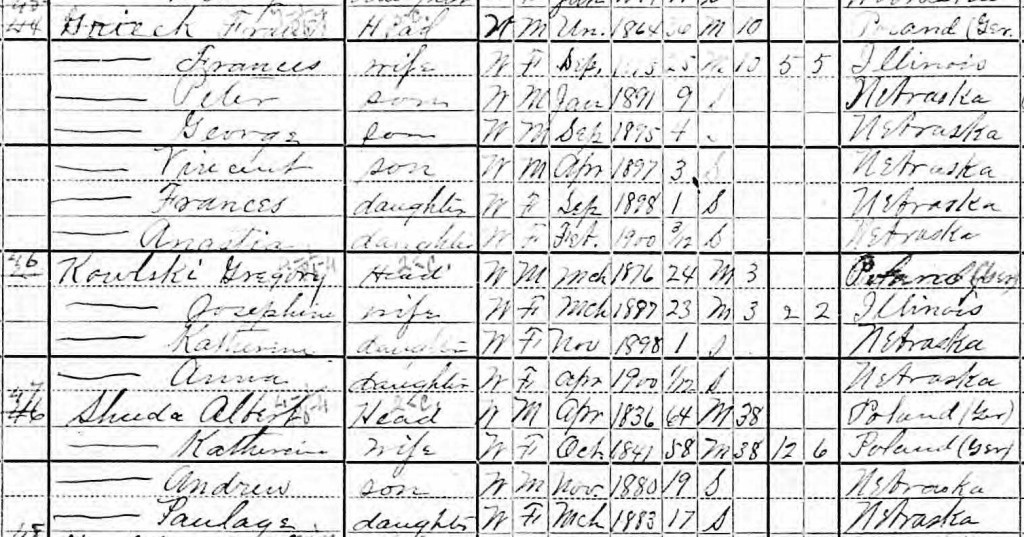 44 Head W M Un. 1864 36 M 10 Poland (Ger.
— Frances wife W F Sep. 25 M 10 5 5 Illinois
— Peter son W M Jan 1891 9 S Nebraska
— George son W M Sep 1895 4 Nebraska
— Vincent son W M Apr 1897 3 S Nebraska
— Frances daughter W F Sep 1898 1 S Nebraska
— Anastia daughter W F Feb. 1900 3/12 S Nebraska
46 Kowlski Gregory Head W M Mch 1876 24 M 3 Poland (Ger)
— Josephine wife W F Mch 1887 23 M 3 2 2 Illinois
— Katherine daughter W F Nov 1898 1 S Nebraska
— Anna daughter W F Apr 1900 1/12 S Nebraska
47
46 Shuda Albert Head W M Apr 1836 64 M 38 Poland (Ger)
— Katherine wife W F Oct 1841 58 M 38 12 6 Poland (Ger)
— Andrew son W M Nov. 1880 19 S Nebraska
— Paulage daughter W F Mch 1883 17 S Nebraska